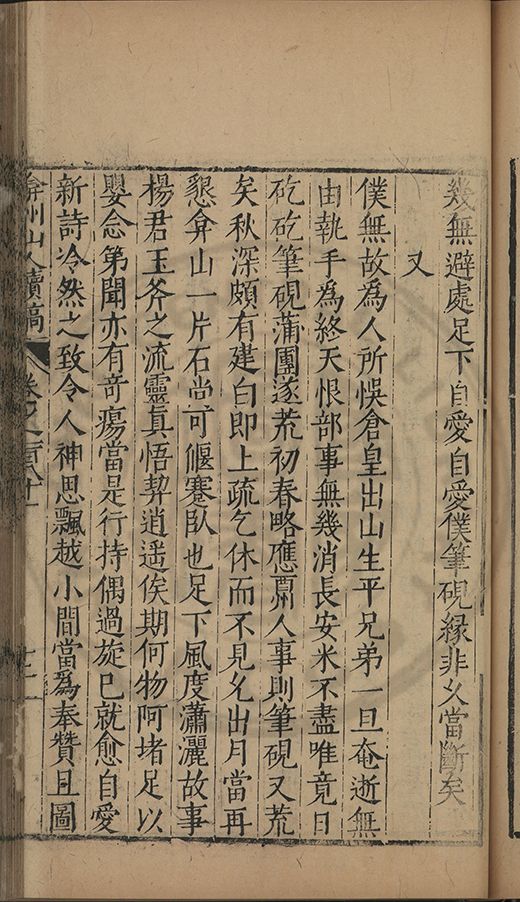 幾無避處足下自愛自愛僕筆硯縁非久當斷矣
又
僕無故為人所悞倉皇出山生平兄弟一旦奄逝無
由執手為終天恨部事無幾消長安米不盡唯竟日
矻矻筆硯蒲團遂荒初春略應酬人事則筆硯又荒
矣秋深頗有建白即上疏乞休而不見允出月當再
懇弇山一片石尚可偃蹇臥也足下風度瀟灑故事
楊君玉斧之流靈真悟契逍遥俟期何物阿堵足以
嬰念第聞亦有竒瘍當是行持偶過旋已就愈自愛
新詩冷然之致令人神思飄越小間當為奉贊且圖
弇州山人續稿
卷之一百八十一